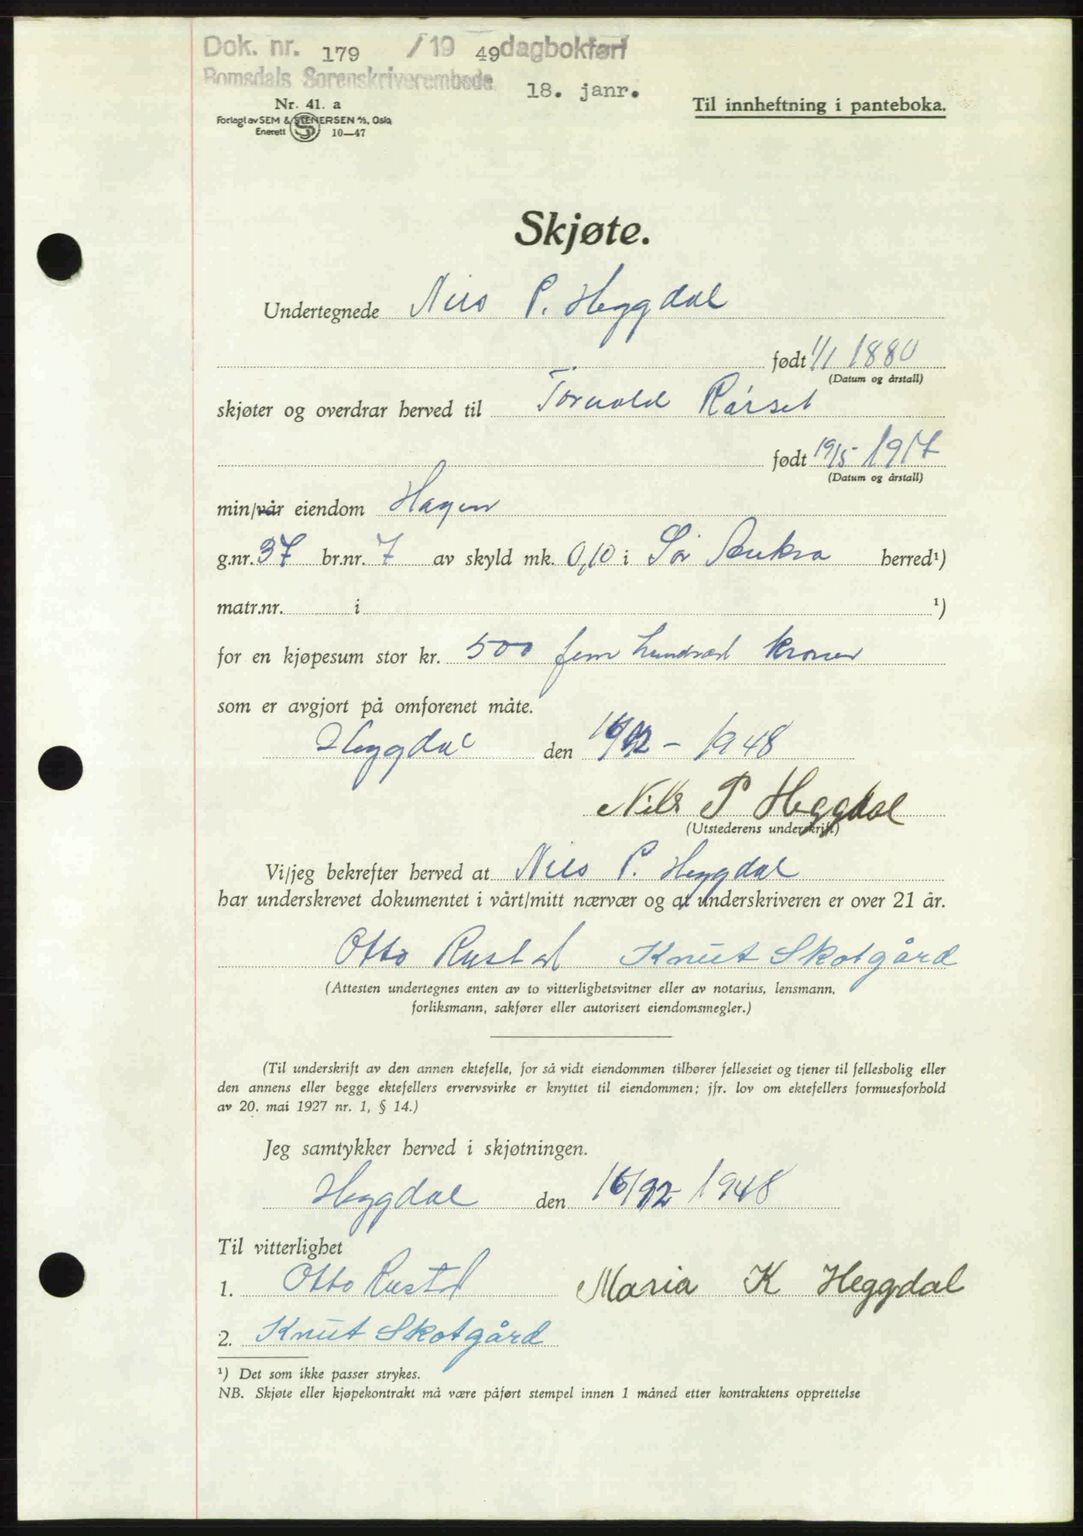 Dok. nr. 179 /19 49 dagbokført
Romsdals Sorenskriverembede 18. janr.
Nr. 41. a
Forlagt av SEM & STENERSEN A/S, Oslo
Enerett 10—47
Til innheftning i panteboka.
Skjøte.
Undertegnede Nils P. Heggdal
født 1/1 1880
(Datum og årstall)
skjøter og overdrar herved til Torvald Rørset
født 19/5 - 1917
(Datum og årstall)
min/vår eiendom Hagen
g.nr. 37 br.nr. 7 av skyld mk. 0,10 i Sør Aukra herred¹)
matr.nr. i ¹)
for en kjøpesum stor kr. 500 fem hundred kroner
som er avgjort på omforenet måte.
Heggdal den 16/12 - 1948
Nils P Heggdal
(Utstederens underskrift)
Vi/jeg bekrefter herved at Nils P. Heggdal
har underskrevet dokumentet i vårt/mitt nærvær og at underskriveren er over 21 år.
Otto Rustad Knut Skotgård
(Attesten undertegnes enten av to vitterlighetsvitner eller av notarius, lensmann,
forliksmann, sakfører eller autorisert eiendomsmegler.)
(Til underskrift av den annen ektefelle, for så vidt eiendommen tilhører felleseiet og tjener til fellesbolig eller
den annens eller begge ektefellers ervervsvirke er knyttet til eiendommen; jfr. lov om ektefellers formuesforhold
av 20. mai 1927 nr. 1, § 14.)
Jeg samtykker herved i skjøtningen.
Heggdal den 16/12 1948
Til vitterlighet
1. Otto Rustad Maria K Heggdal
2. Knut Skotgård
¹) Det som ikke passer strykes.
NB. Skjøte eller kjøpekontrakt må være påført stempel innen 1 måned etter kontraktens opprettelse